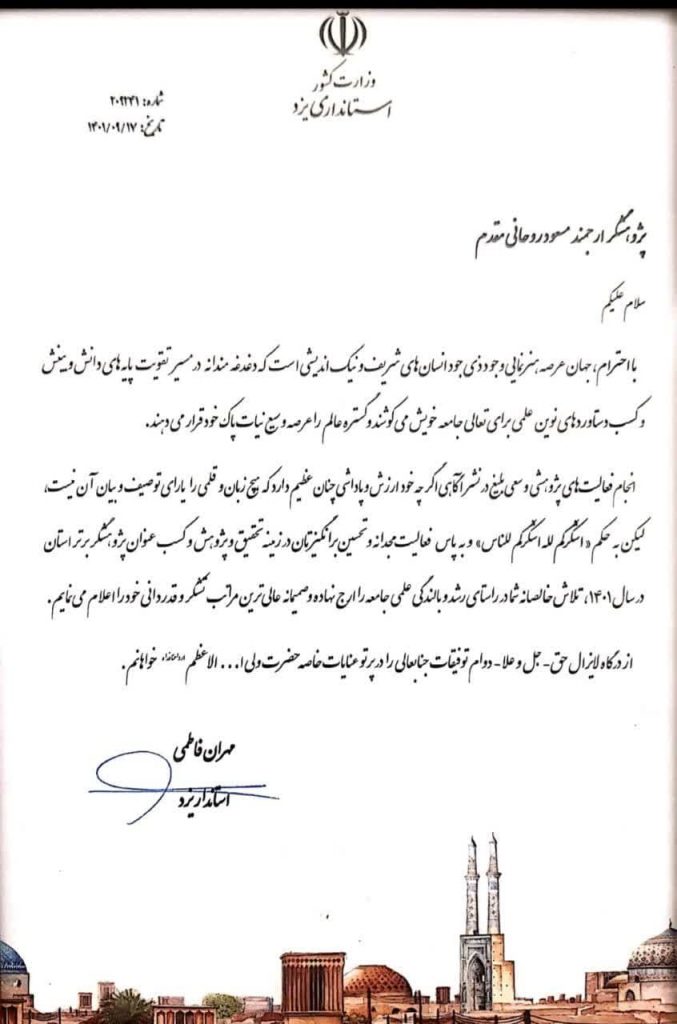 وزارت کشور
استانداری یزد
شماره: ۲۰۹۲۴۱
تاریخ: ۱۴۰۱/۰۹/۱۷
پژوهشگر ارجمند مسعود روحانی مقدم
سلام علیکم
با احترام، جهان عرصه هنرنمایی وجود ذی جود انسان های شریف و نیک اندیشی است که دغدغه مندانه در مسیر تقویت پایه های دانش و بینش
و کسب دستاوردهای نوین علمی برای تعالی جامعه خویش می کوشند و گستره عالم را عرصه وسیع نیات پاک خود قرار می دهند.
انجام فعالیت های پژوهشی و سعی بلیغ در نشر آگاهی اگرچه خود ارزش و پاداشی چنان عظیم دارد که هیچ زبان و قلمی را یارای توصیف و بیان آن نیست،
لیکن به حکم «اشکرکم لله اشکرکم للناس» و به پاس فعالیت مجدانه و تحسین برانگیزتان در زمینه تحقیق و پژوهش و کسب عنوان پژوهشگر برتر استان
در سال ۱۴۰۱، تلاش خالصانه شما در راستای رشد و بالندگی علمی جامعه را ارج نهاده و صمیمانه عالی ترین مراتب تشکر و قدردانی خود را اعلام می نمایم.
از درگاه لایزال حق- جل و علا- دوام توفیقات جنابعالی را در پرتو عنایات خاصه حضرت ولی ا... الاعظم خواهانم.
مهران فاطمی
استاندار یزد